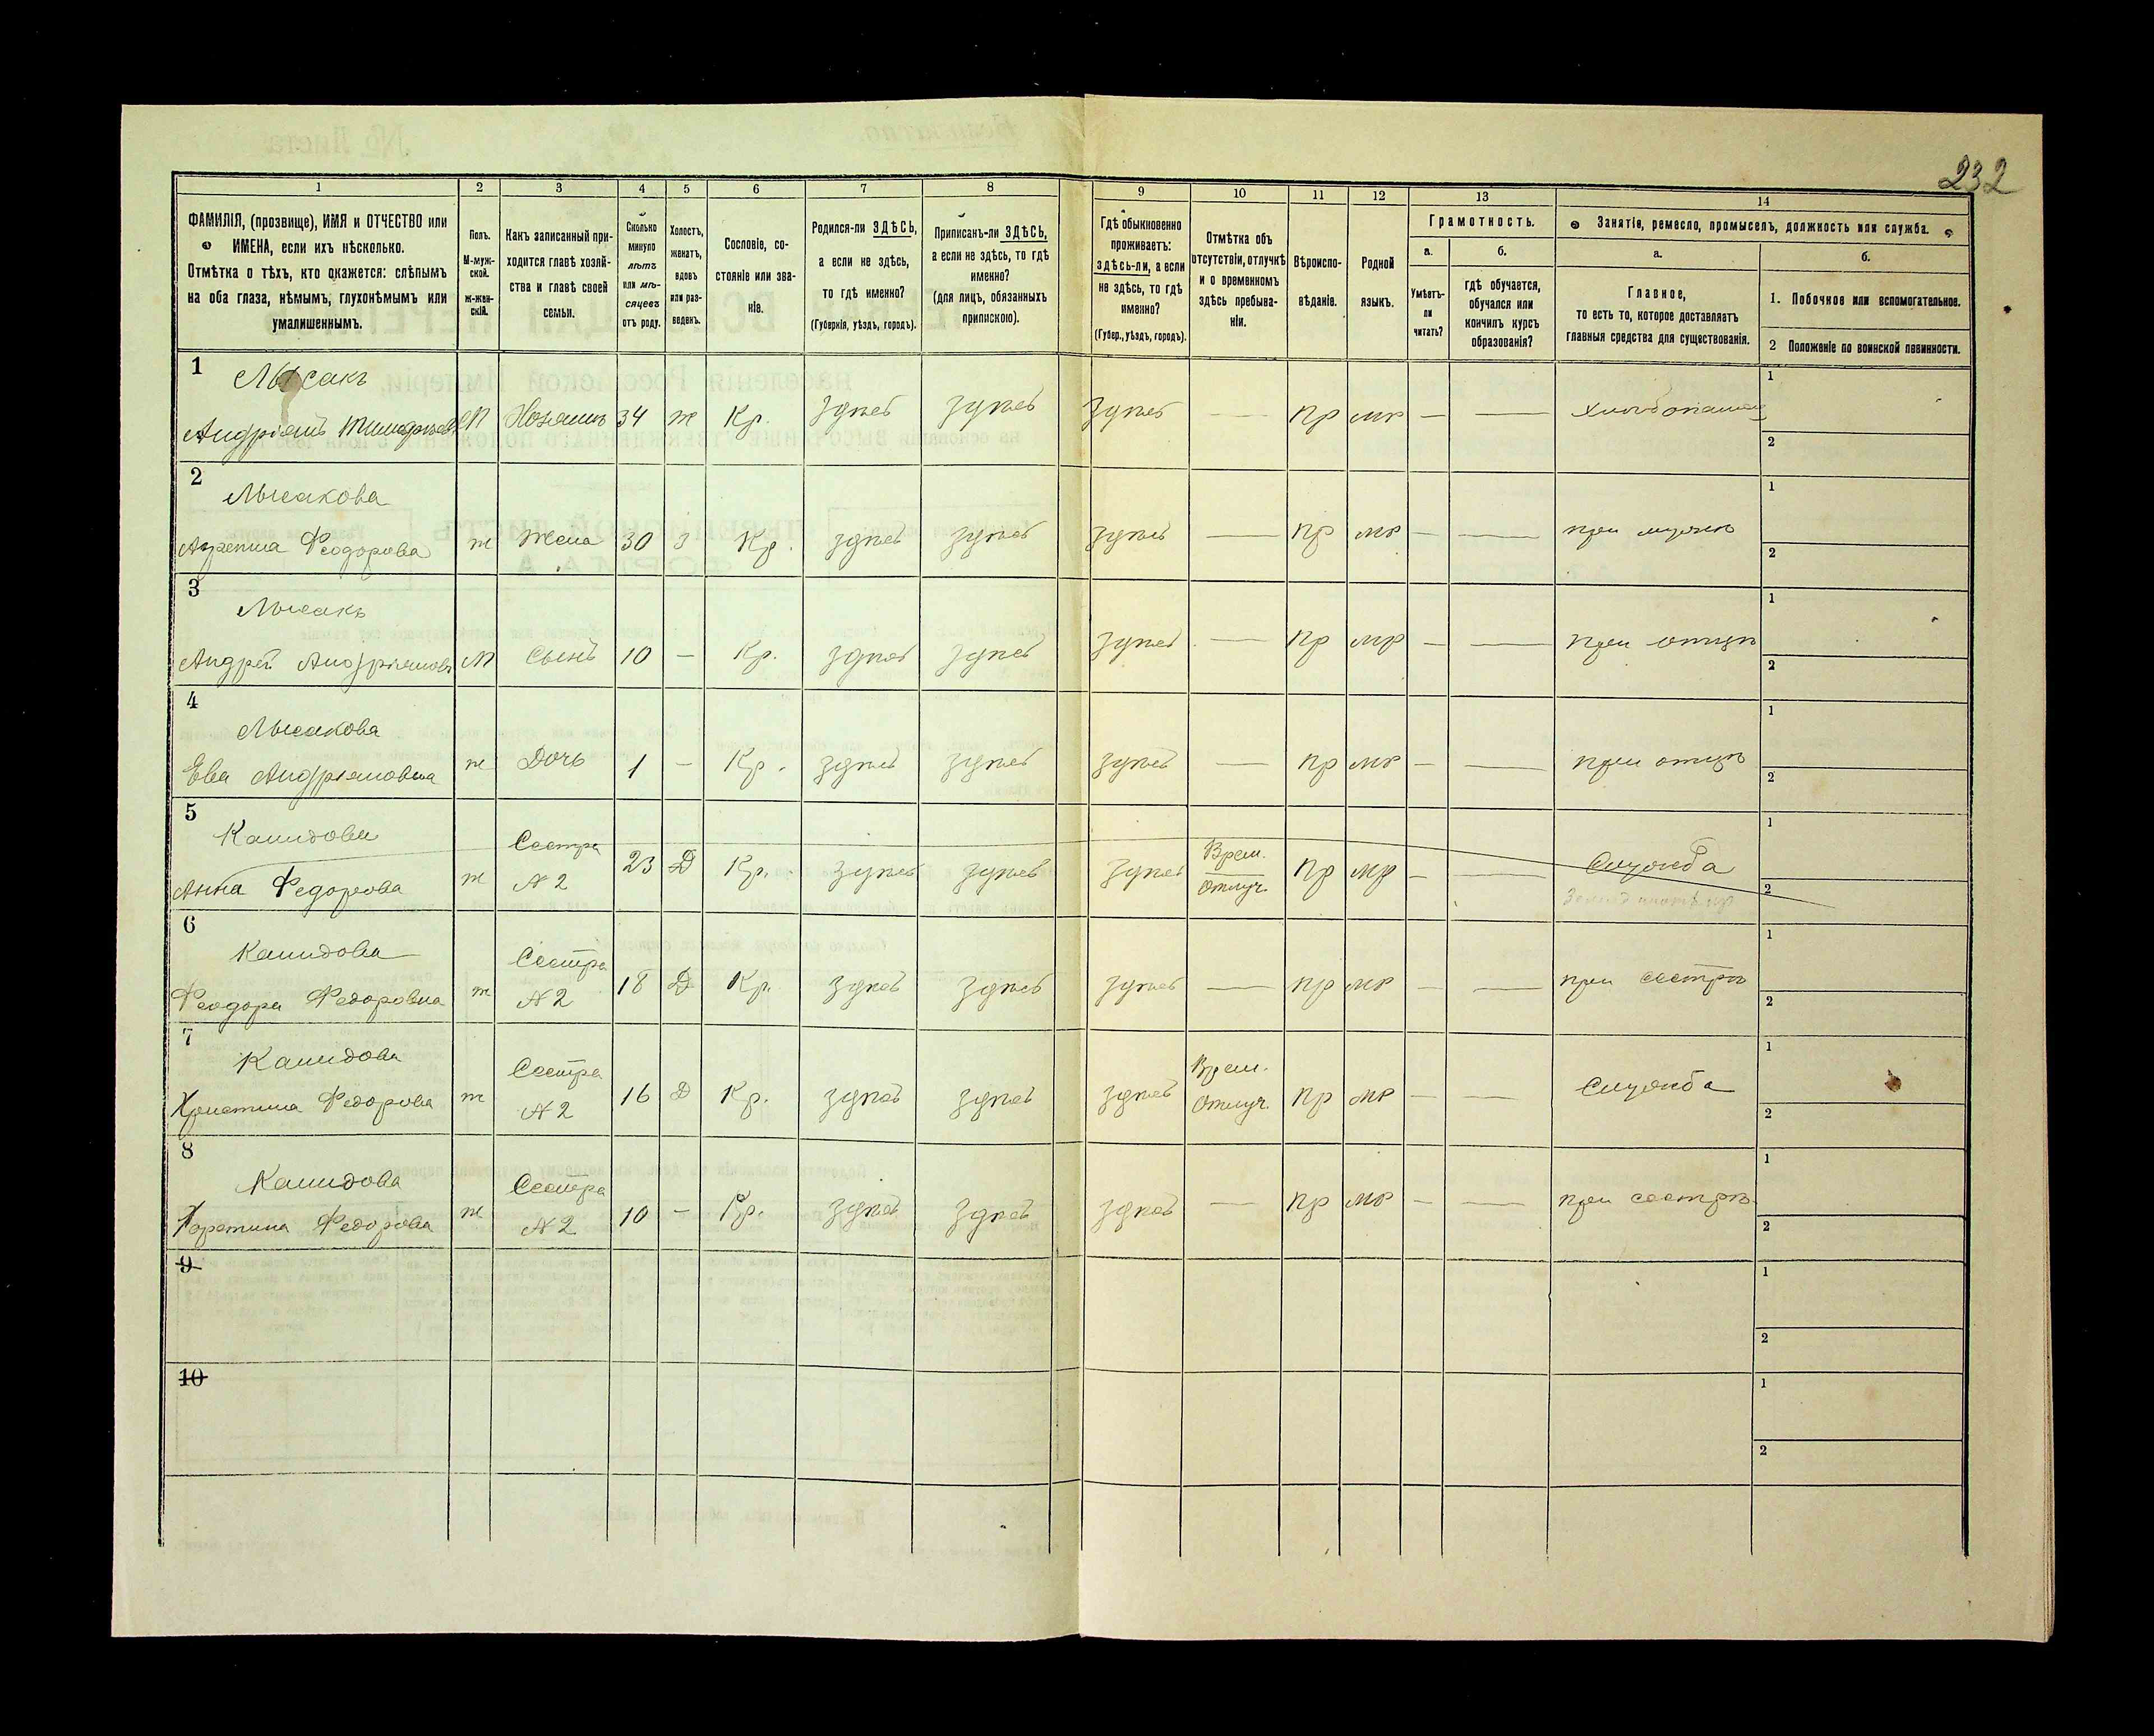 232
1 2 3 4 5 6 7 8 9 10 11 12 13 14
ФАМИЛІЯ, (прозвище), ИМЯ и ОТЧЕСТВО или
ИМЕНА, если ихъ нѣсколько.
Отмѣтка о тѣхъ, кто окажется: слѣпымъ
на оба глаза, нѣмымъ, глухонѣмымъ или
умалишеннымъ.
Полъ.
М-муж-
ской.
Ж-жен-
скій.
Какъ записанный при-
ходится главѣ хозяй-
ства и главѣ своей
семьи.
Сколько
минуло
лѣтъ
или мѣ-
сяцевъ
отъ роду.
Холостъ,
женатъ,
вдовъ
или раз-
веденъ.
Сословіе, со-
стояніе или зва-
ніе.
Родился-ли ЗДѢСЬ,
а если не здѣсь,
то гдѣ именно?
(Губернія, уѣздъ, городъ).
Приписанъ-ли ЗДѢСЬ,
а если не здѣсь, то гдѣ
именно?
(для лицъ, обязанныхъ
припискою).
Гдѣ обыкновенно
проживаетъ:
здѣсь-ли, а если
не здѣсь, то гдѣ
именно?
(Губер., уѣздъ, городъ).
Отмѣтка объ
отсутствіи, отлучкѣ
и о временномъ
здѣсь пребыва-
ніи.
Вѣроиспо-
вѣданіе.
Родной
языкъ.
Грамотность.
а.
Умѣетъ-
ли
читать?
б.
гдѣ обучается,
обучался или
кончилъ курсъ
образованія?
Занятіе, ремесло, промыселъ, должность или служба.
а.
Главное,
то есть то, которое доставляетъ
главныя средства для существованія.
б.
1. Побочное или вспомогательное.
2 Положеніе по воинской повинности.
1 Лысакъ
Андріянъ М Хозяинъ 34 ж Кр. здѣсь здѣсь здѣсь — пр мр — — 1
2
2 Лысакова
Агрепина Феодорова ж Жена 30 з Кр. здѣсь здѣсь здѣсь — пр мр — — при мужѣ 1
2
3 Лысакъ
Андрей Андріяновъ М Сынъ 10 — Кр. здѣсь здѣсь здѣсь — пр мр — — при отцѣ 1
2
4 Лысакова
Ева Андріяновна ж Дочь 1 — Кр. здѣсь здѣсь здѣсь — пр мр — — при отцѣ 1
2
5
Анна Федорова ж Сестра N 2 23 Д Кр. здѣсь здѣсь здѣсь Врем. Отлуч. пр мр — — Служба 1
2
6
Феодора Федоровна ж Сестра N 2 18 Д Кр. здѣсь здѣсь здѣсь — пр мр — — при сестрѣ 1
2
7
Христина Федорова ж Сестра N 2 16 Д Кр. здѣсь здѣсь здѣсь Врем. Отлуч. пр мр — — Служба 1
2
8
Федорова ж Сестра N 2 10 — Кр. здѣсь здѣсь здѣсь — пр мр — — при сестрѣ 1
2
9 1
2
10 1
2